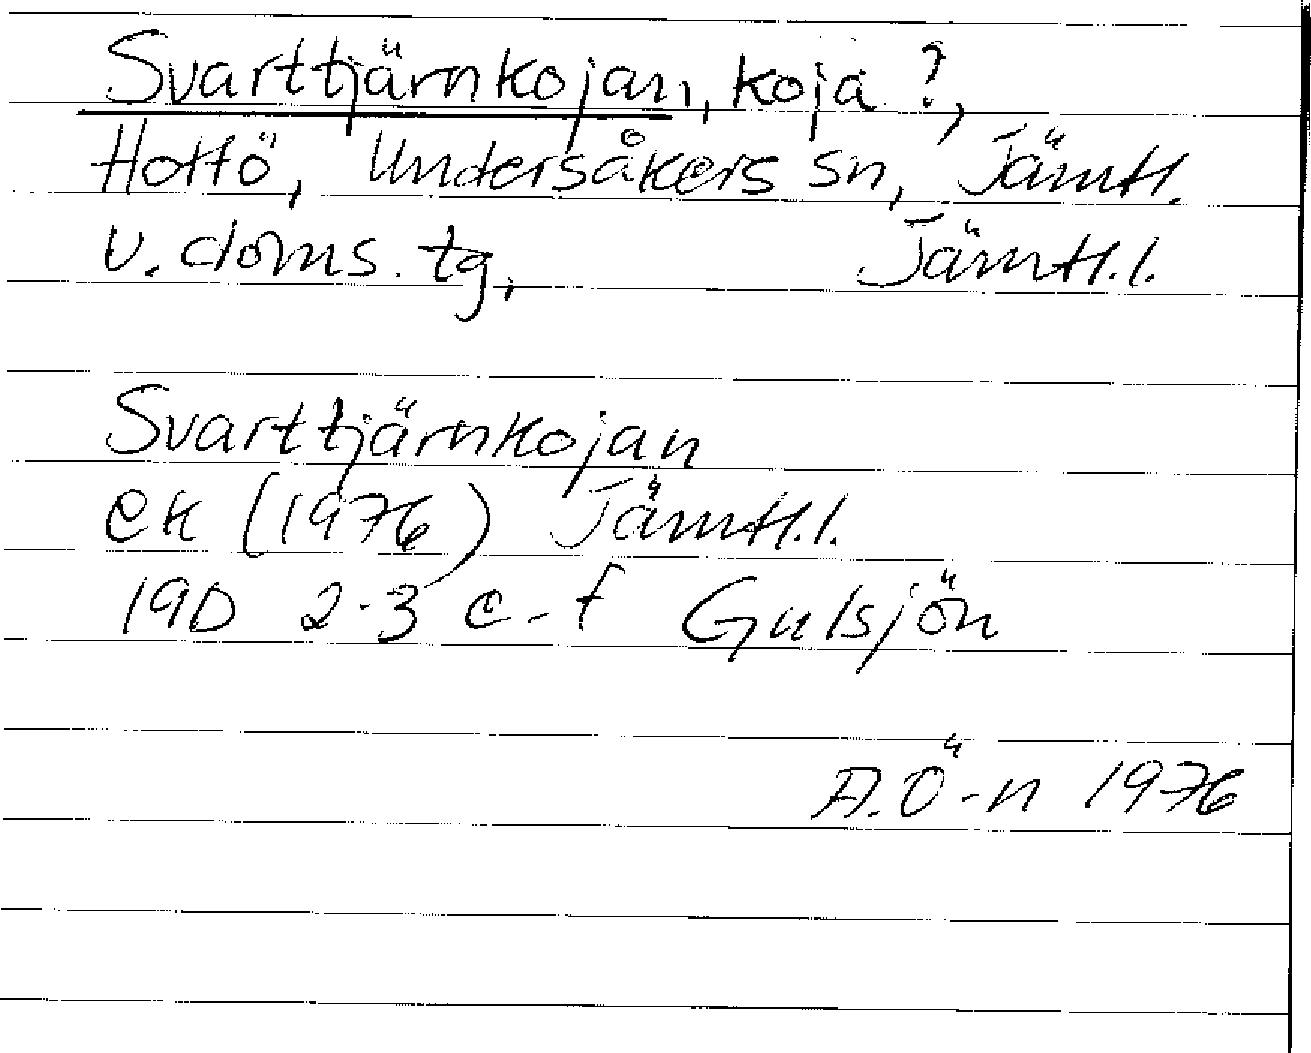 Svarttjärnkojan, koja ?,
Hottö, Undersåkers sn, Jämtl.
v. doms. tg, Jämtl.l.
Svarttjärnkojan
ek (1976) Jämtl.l.
19D 2-3 e-f Gulsjön
A.Ö-n 1976